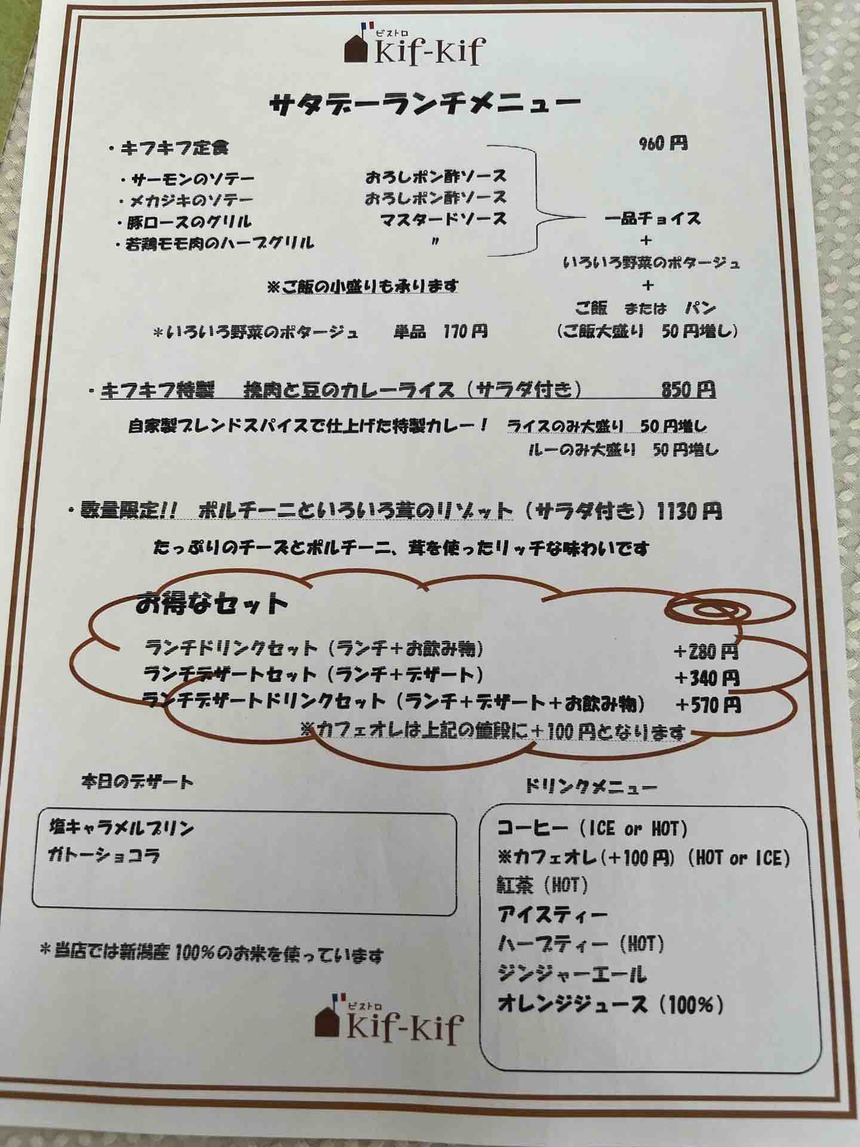 ビストロ
Kif-Kif
サタデーランチメニュー
・キフキフ定食 960円
・サーモンのソテー おろしポン酢ソース
・メカジキのソテー おろしポン酢ソース
・豚ロースのグリル マスタードソース
・若鶏モモ肉のハーブグリル 〃
一品チョイス
+
いろいろ野菜のポタージュ
+
ご飯 または パン
(ご飯大盛り 50円増し)
※ご飯の小盛りも承ります
*いろいろ野菜のポタージュ 単品 170円
・キフキフ特製 挽肉と豆のカレーライス(サラダ付き) 850円
自家製ブレンドスパイスで仕上げた特製カレー! ライスのみ大盛り 50円増し
ルーのみ大盛り 50円増し
・数量限定!! ポルチーニといろいろ茸のリゾット(サラダ付き)1130円
たっぷりのチーズとポルチーニ、茸を使ったリッチな味わいです
お得なセット
ランチドリンクセット(ランチ+お飲み物) +280円
ランチデザートセット(ランチ+デザート) +340円
ランチデザートドリンクセット(ランチ+デザート+お飲み物) +570円
※カフェオレは上記の値段に+100円となります
本日のデザート
塩キャラメルプリン
ガトーショコラ
*当店では新潟産100%のお米を使っています
ビストロ
Kif-Kif
ドリンクメニュー
コーヒー(ICE or HOT)
※カフェオレ(+100円)(HOT or ICE)
紅茶(HOT)
アイスティー
ハーブティー(HOT)
ジンジャーエール
オレンジジュース(100%)